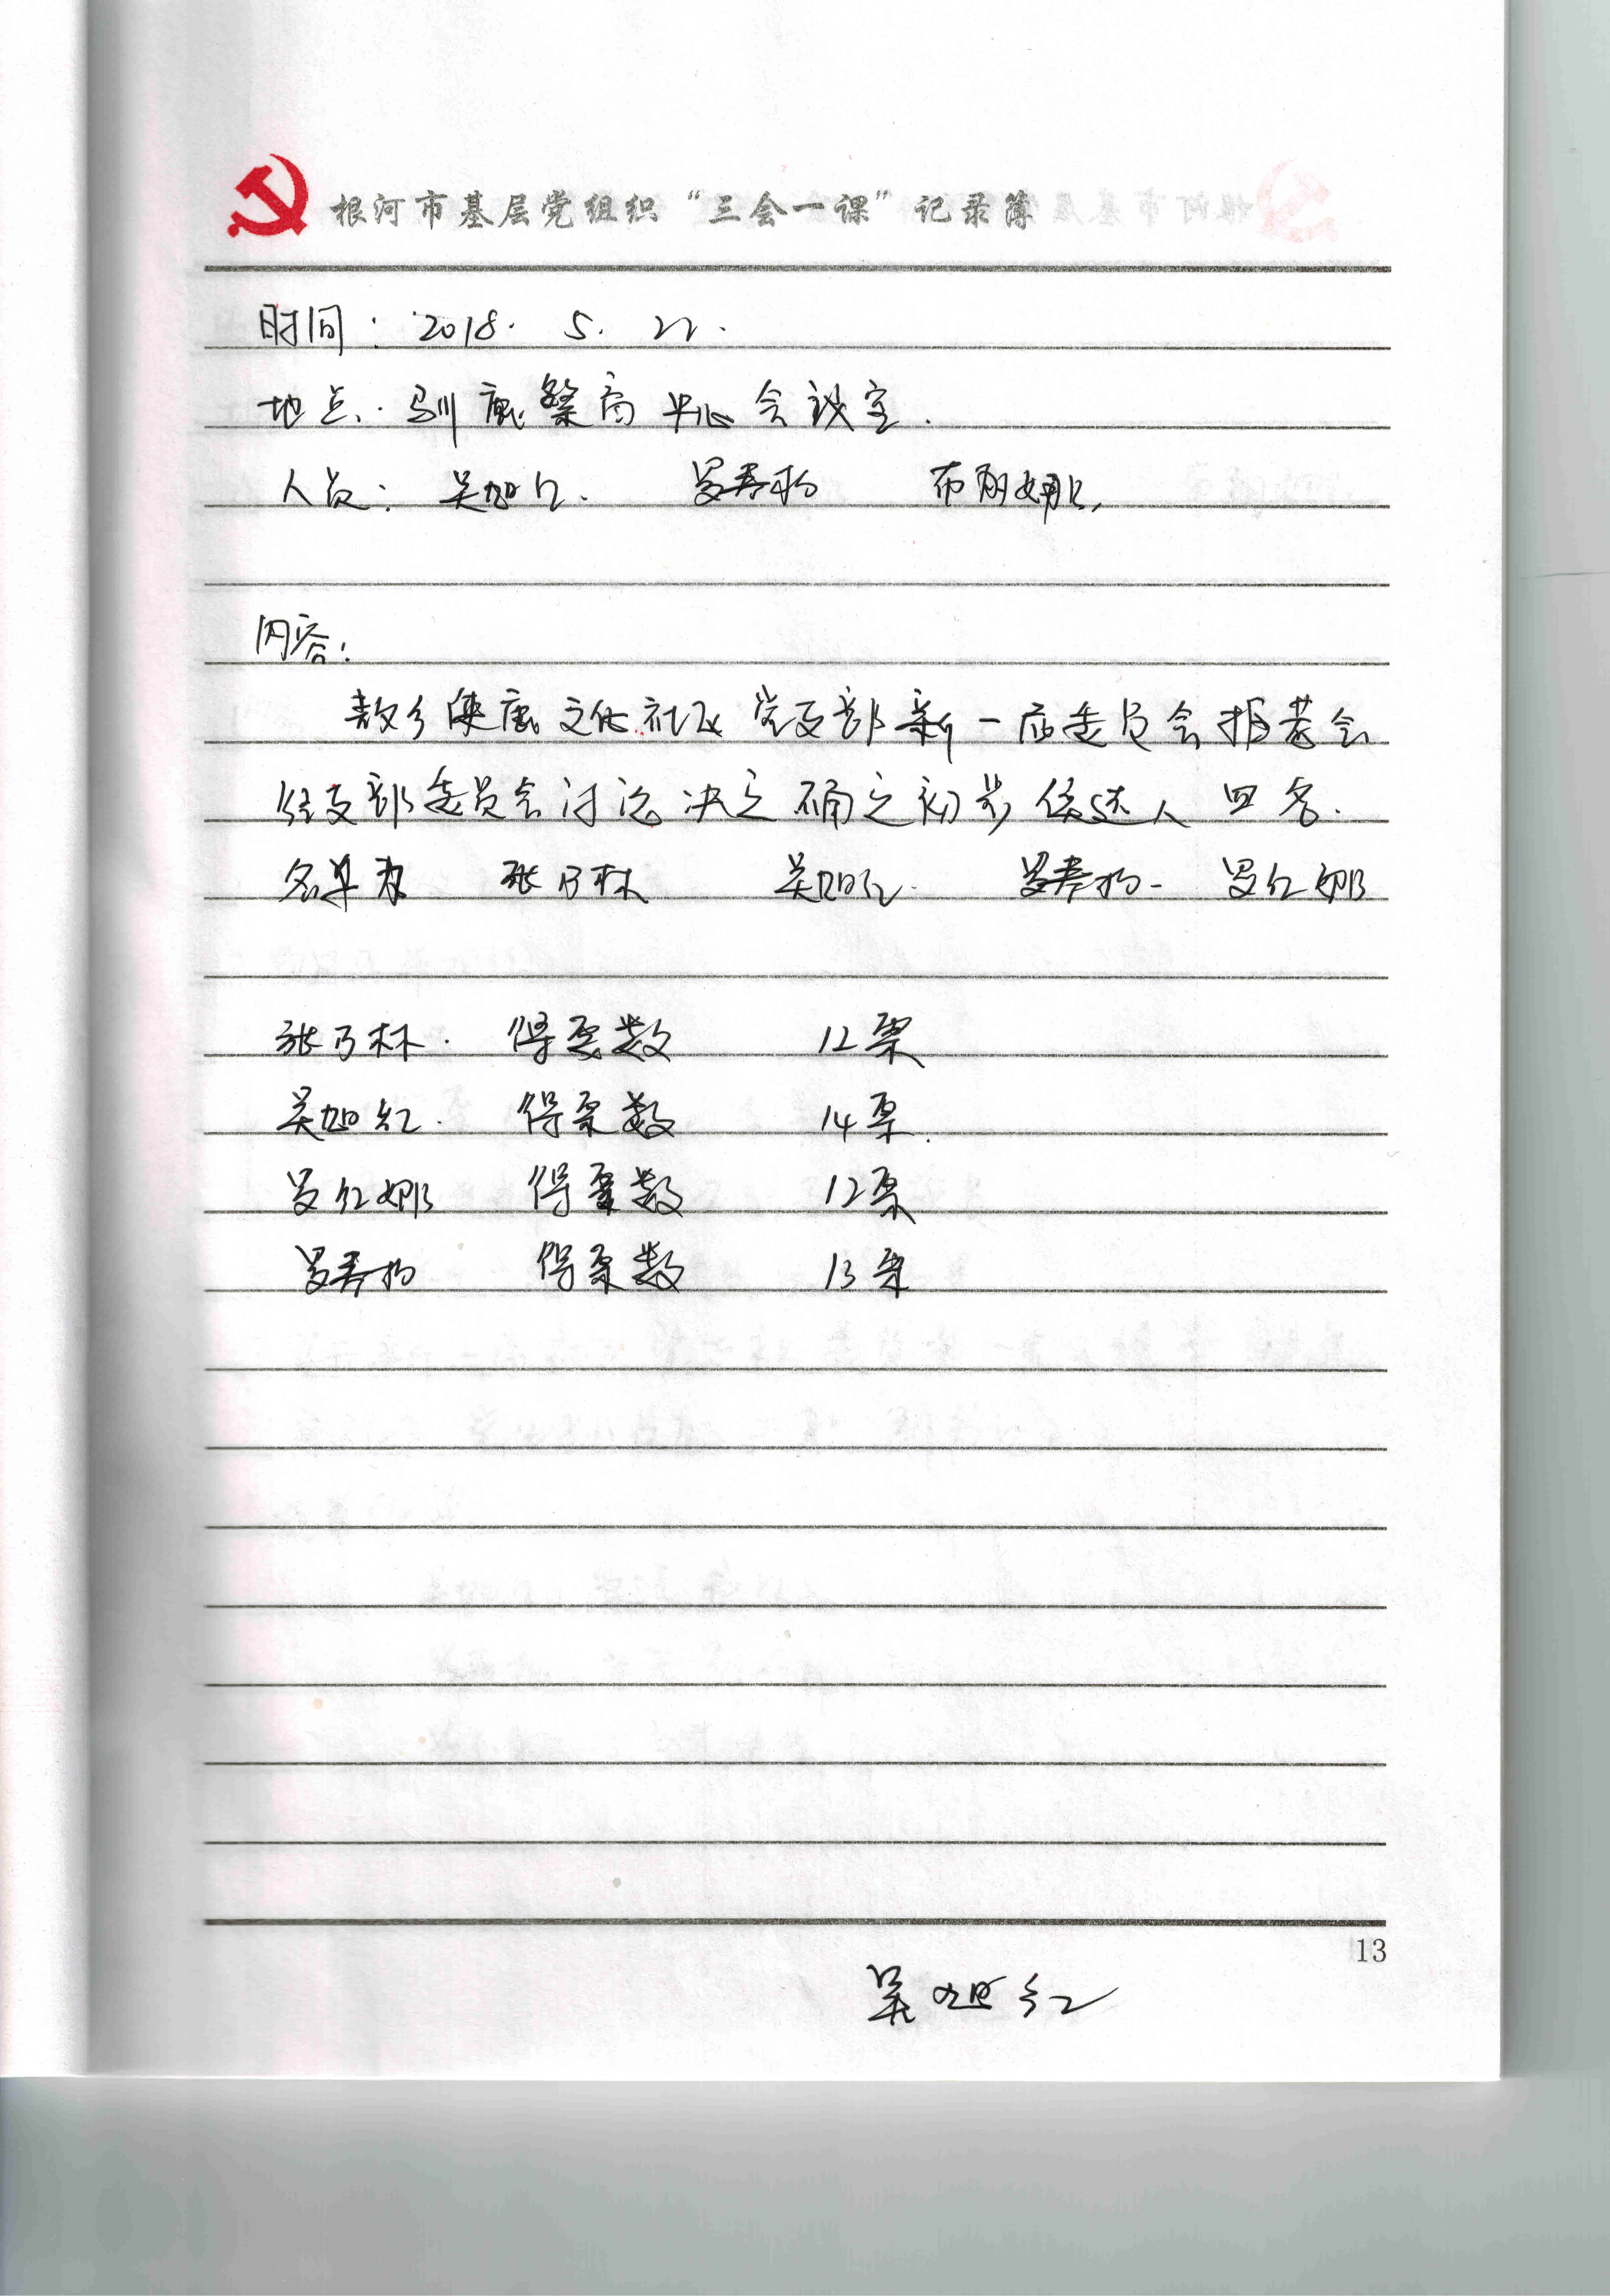 根河市基层党组织“三会一课”记录簿
时间: 2018. 5. 22.
地点: 驯鹿繁育中心会议室.
人员: 吴旭红. 罗春 布丽娜.
内容:
敖乡使鹿文化社区党支部新一届委员会推荐会
经支部委员会讨论决定确定初步候选人四名.
名单为 张乃林 吴旭红. 罗春 罗红娜
张乃林. 得票数 12票
吴旭红. 得票数 14票.
罗红娜 得票数 12票
罗春 得票数 13票
13
吴旭红